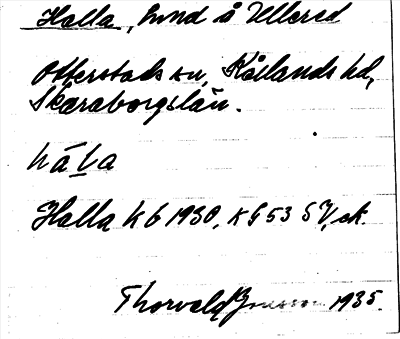 Halla, Sund å Ullered
Otterstads sn, Kållands hd,
Skaraborgs län.
hála
Halla k 6 1930, k G 53 SV, ek.
Thorvald Jonsson 1935.